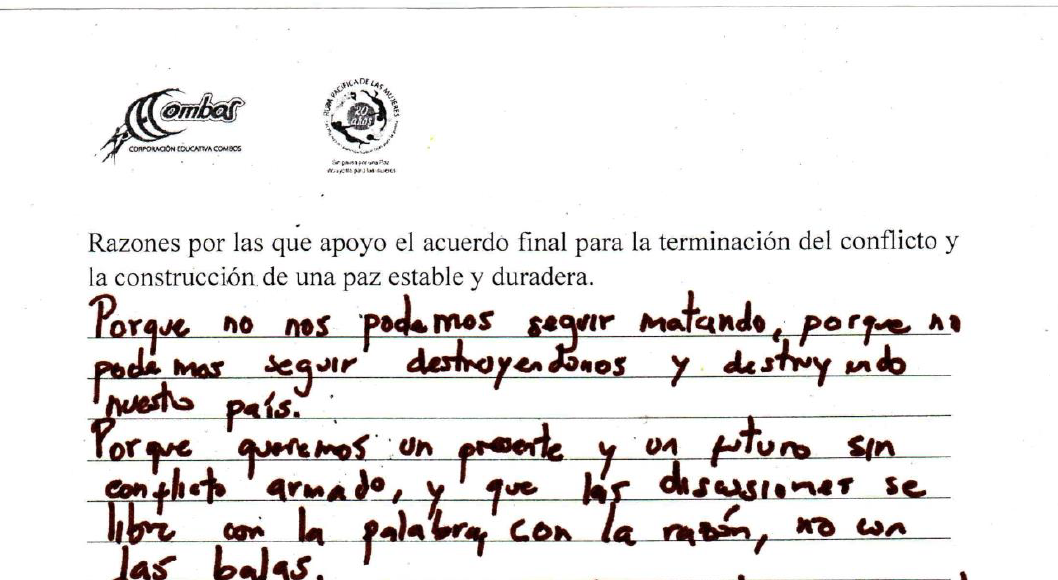 Combos
CORPORACIÓN EDUCATIVA COMBOS
RUTA PACIFICA DE LAS MUJERES
20
años
Razones por las que apoyo el acuerdo final para la terminación del conflicto y
la construcción de una paz estable y duradera.
Porque no nos podemos seguir matando, porque no
podemos seguir destroyendonos y destruyendo
nuestro país.
Porque queremos un presente y un futuro sin
conflicto armado, y que las discusiones se
libre con la palabra, con la razón, no con
las balas.